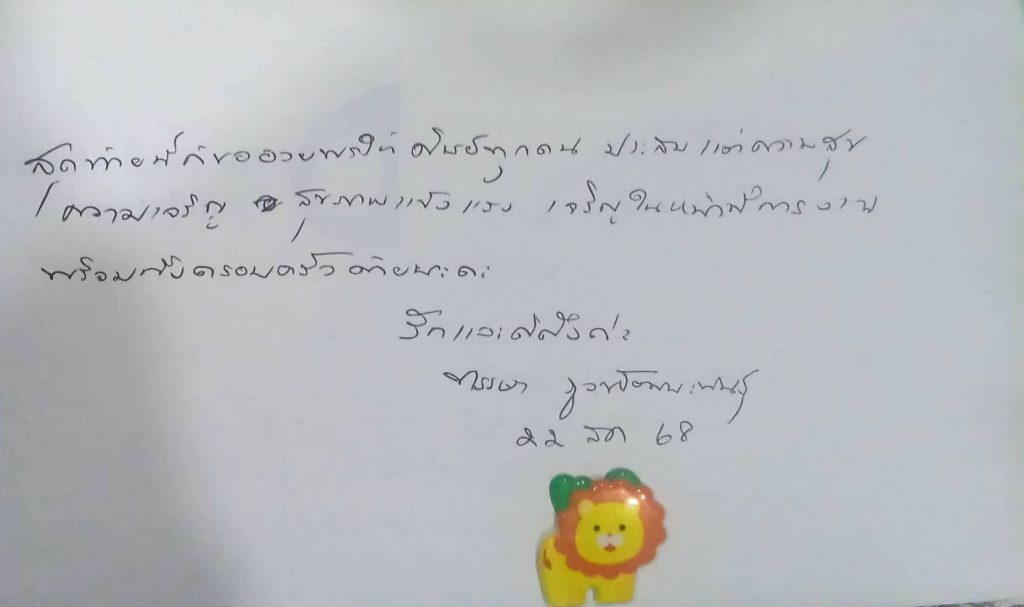 สุดท้ายนี้ก็ขออวยพรให้ ทุกคน ประสบแต่ความสุข
ความเจริญ สุขภาพแข็งแรง เจริญในหน้าที่การงาน
พร้อมทั้งครอบครัวด้วยนะคะ
รักและคิดถึงค่ะ
22 สค 68